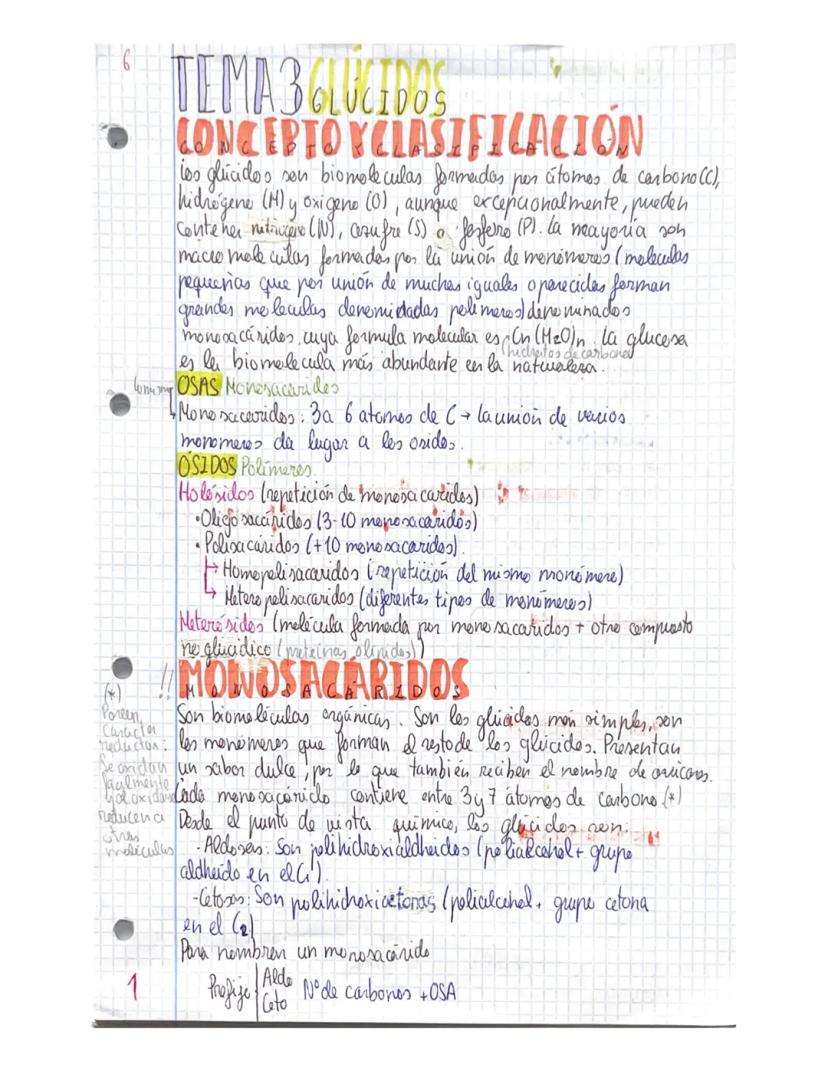 6
TEMA 3 GLÚCIDOS
GLÚCIDOS
CONCEPTO Y CLASIFICACIÓN
Los glúcidos son biomoleculas formadas por átomos de carbono (C),
hidrógeno (H) y oxigeno (O), aunque excepcionalmente, pueden
contener nitrogeno (N), azufre (S) o fosforo (P). La mayoría son
macromoleculas formadas por la unión de monómeros (moleculas
pequeñas que por unión de muchas iguales o parecidas forman
grandes moleculas denomidadas polimeros) denominados
monosacáridos, cuya formula molecular es Cn(H2O)n. La glucosa
(hidratos de carbono)
es la biomolecula más abundante en la naturaleza.
OSAS Monosacaridos
Monosacaridos: 3 a 6 atomos de C → la unión de varios
monomeros da lugar a los osidos.
ÓSIDOS Polímeros
Holósidos (repetición de monosacaridos)
• Oligosacáridos (3-10 monosacaridos)
• Polisacáridos (+10 monosacaridos).
→ Homopolisacaridos (repetición del mismo monómero)
→ Heteropolisacaridos (diferentes tipos de monómeros)
Heterósidos (molécula formada por monosacaridos + otro compuesto
no glucidico (proteínas o lípidos))
!! MONOSACÁRIDOS
Son biomoléculas orgánicas. Son los glúcidos más simples, son
los monómeros que forman el resto de los glúcidos. Presentan
un sabor dulce, por lo que también reciben el nombre de azúcares.
Cada monosacárido contiene entre 3 y 7 átomos de carbono (*)
(*)
Poseen
caracter
reductor:
Se oxidan
facilmente
y al oxidarse
reducen a
otras
moléculas
Desde el punto de vista químico, los glúcidos son:
- Aldosas: Son polihidroxialdheidos (polialcohol + grupo
aldheido en el C1).
- Cetosas: Son polihidroxicetonas (polialcohol + grupo cetona
en el C2)
Para nombrar un monosacárido
Prefijo Aldo
Ceto
Nº de carbonos + OSA
1